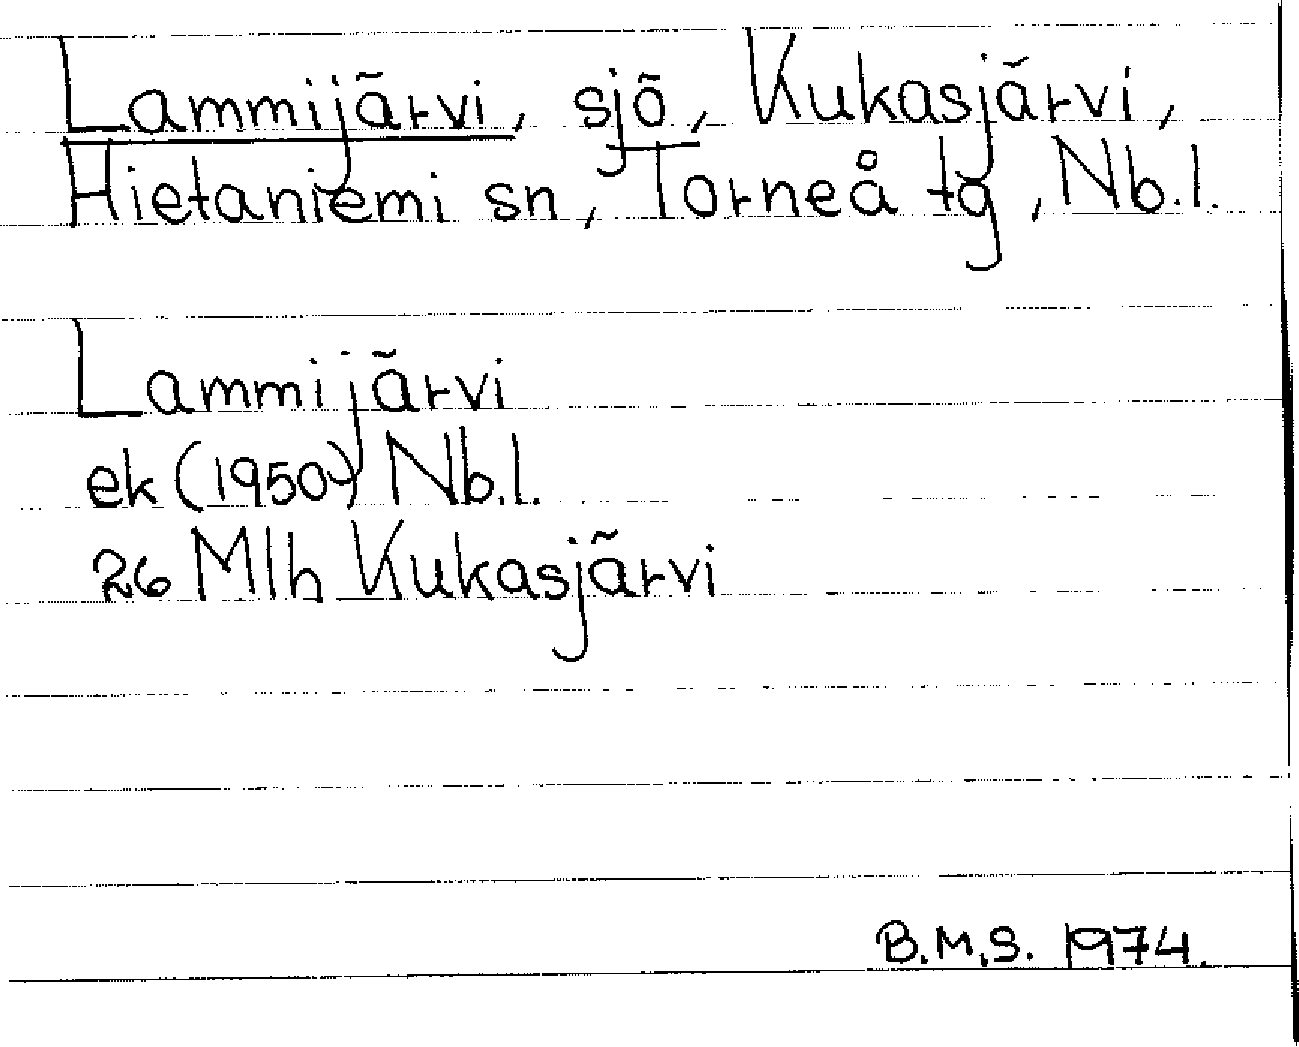 Lammijärvi, sjö, Kukasjärvi,
Hietaniemi sn, Torneå tg, Nb.l.
Lammijärvi
ek (1950) Nb.l.
26 Mlh Kukasjärvi
B.M.S. 1974.